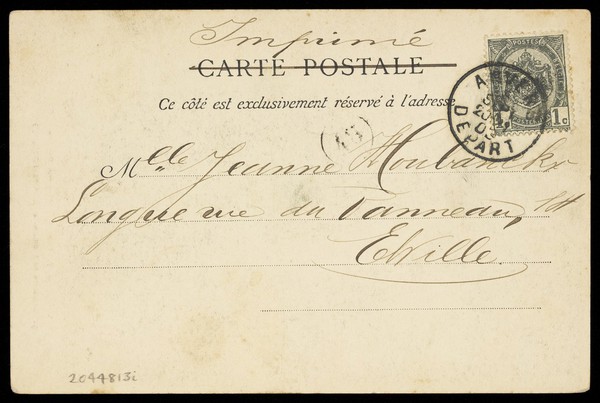 Imprimé
CARTE POSTALE
Ce côté est exclusivement réservé à l'adresse
POSTES
1 c
DEPART
Mlle Jeanne
Longue rue du Vanneau,
E/Ville.
2044813i